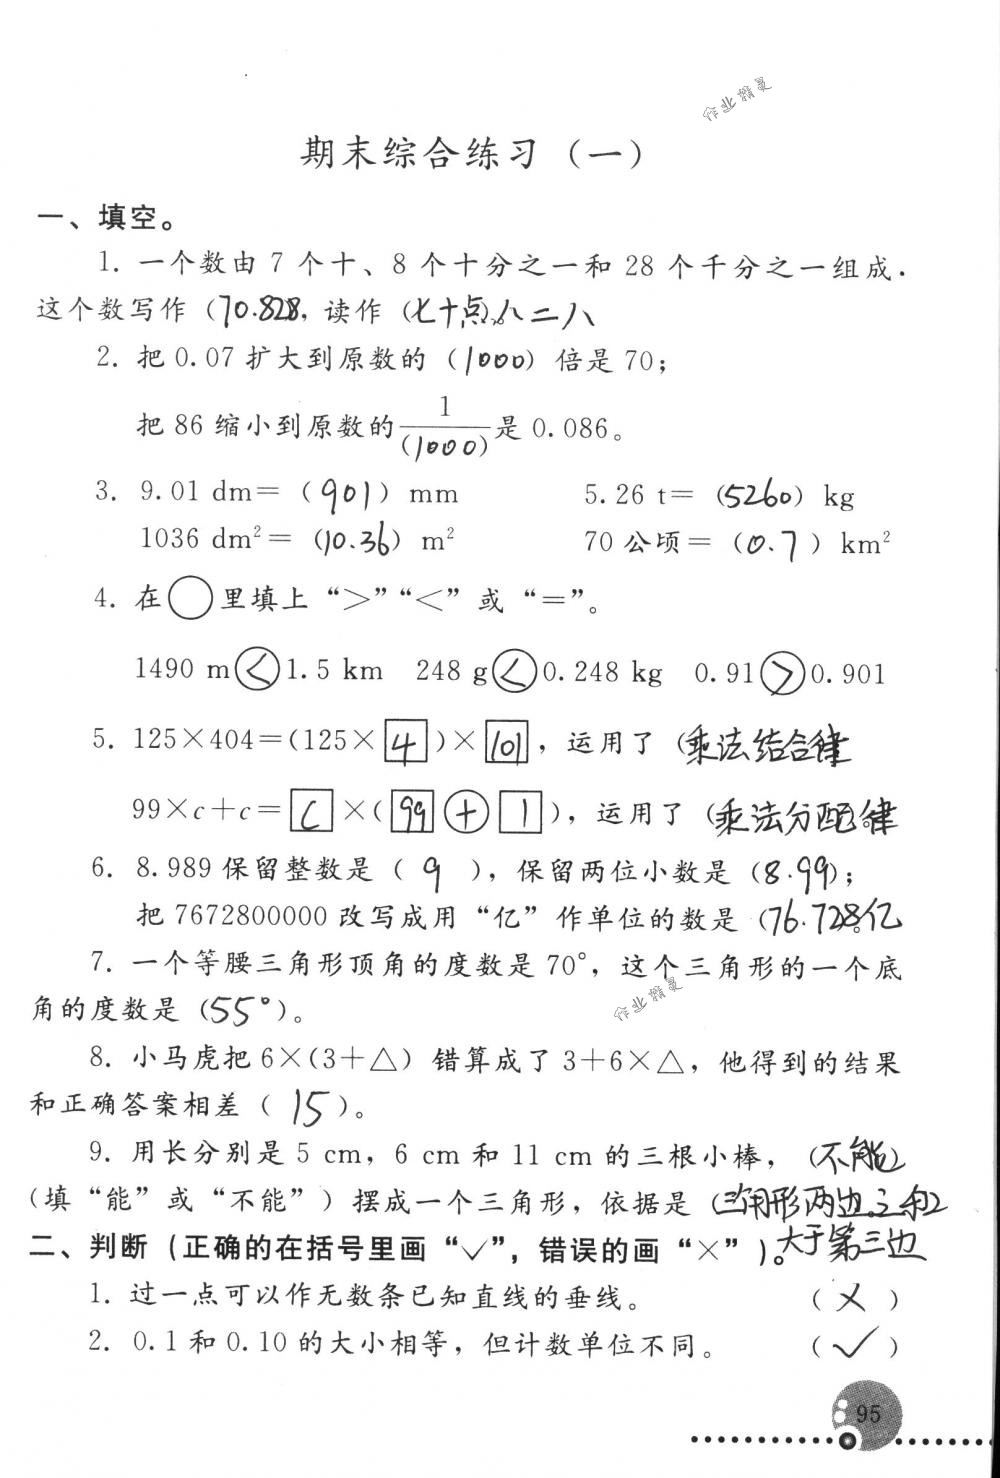 作业精灵
期末综合练习（一）
一、填空。
1. 一个数由 7 个十、8 个十分之一和 28 个千分之一组成.
这个数写作（70.828，读作（七十点八二八
2. 把 0.07 扩大到原数的（1000）倍是 70；
把 86 缩小到原数的 1/(1000) 是 0.086。
3. 9.01 dm=（901）mm 5.26 t=（5260）kg
1036 dm²=（10.36）m² 70 公顷=（0.7）km²
4. 在○里填上“>”“<”或“=”。
1490 m<1.5 km 248 g<0.248 kg 0.91>0.901
5. 125×404=(125×4)×101，运用了（乘法结合律
99×c+c=c×(99+1)，运用了（乘法分配律
6. 8.989 保留整数是（9），保留两位小数是（8.99）；
把 7672800000 改写成用“亿”作单位的数是（76.728亿
7. 一个等腰三角形顶角的度数是 70°，这个三角形的一个底
角的度数是（55°）。
作业精灵
8. 小马虎把 6×(3+△) 错算成了 3+6×△，他得到的结果
和正确答案相差（15）。
9. 用长分别是 5 cm，6 cm 和 11 cm 的三根小棒，（不能）
（填“能”或“不能”）摆成一个三角形，依据是（三角形两边之和
大于第三边
二、判断（正确的在括号里画“√”，错误的画“×”）。
1. 过一点可以作无数条已知直线的垂线。（×）
2. 0.1 和 0.10 的大小相等，但计数单位不同。（√）
95